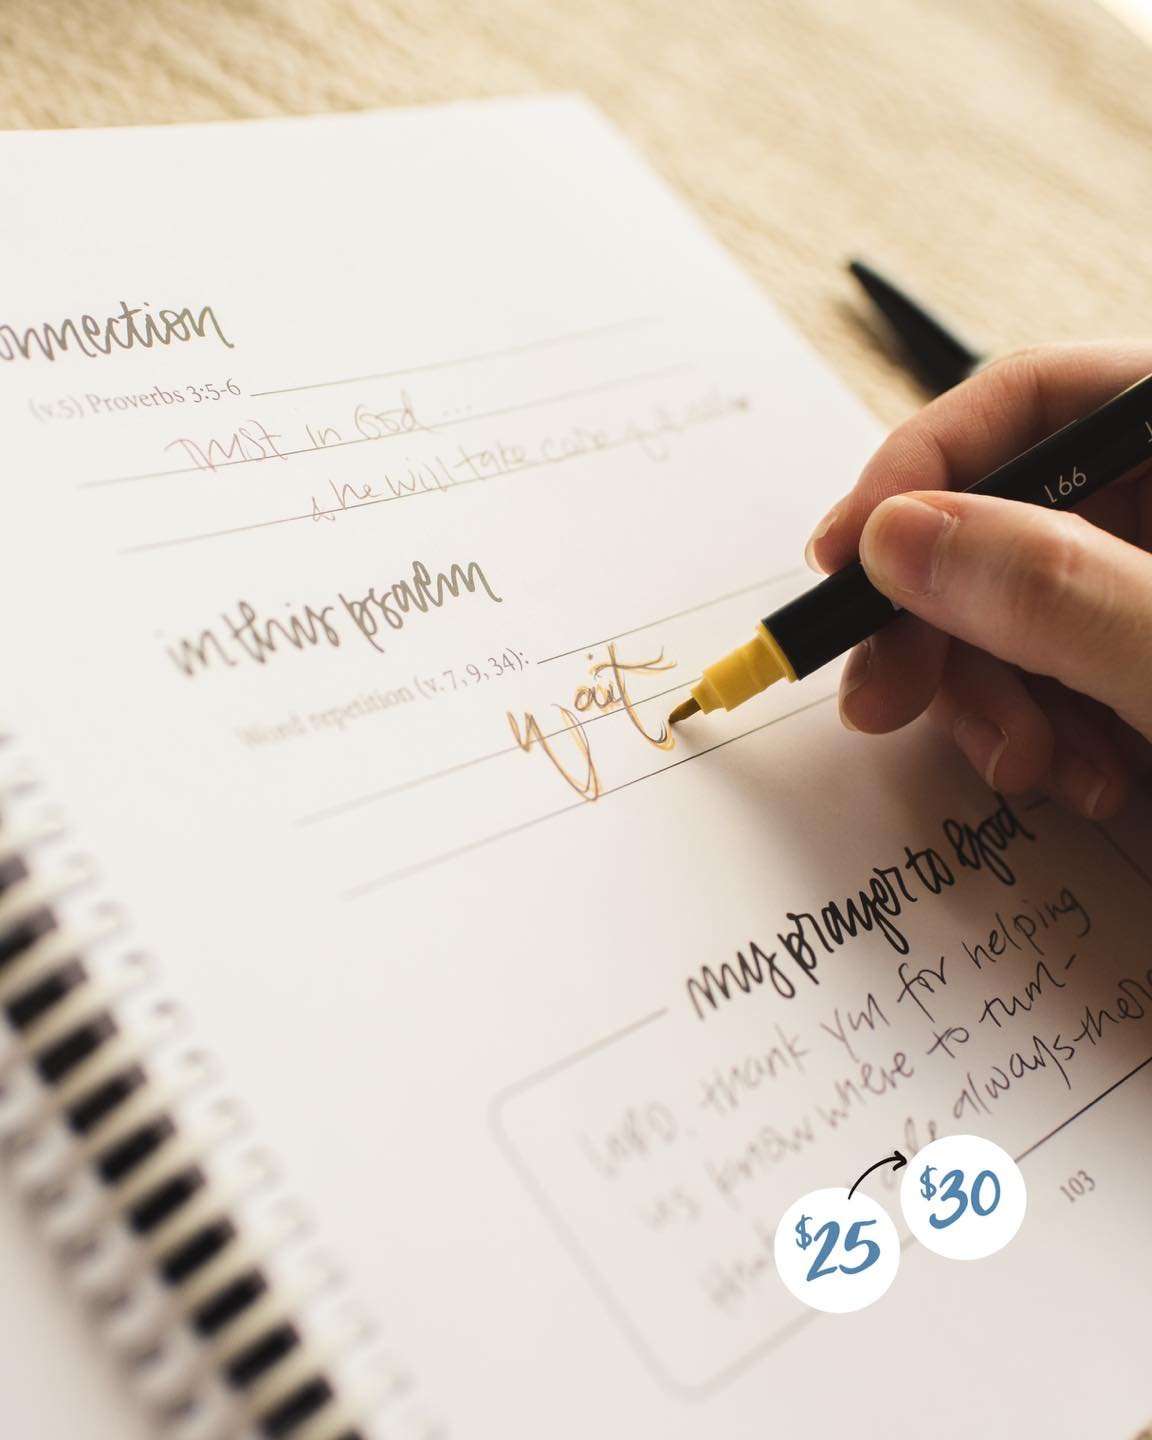 onnection
(v.5) Proverbs 3:5-6
Trust in God ...
& he will take care of
in this psalm
Word repetition (v. 7, 9, 34):
wait
my prayer to God
LORD, thank you for helping
us know where to turn-
always there
$25
$30
103
199